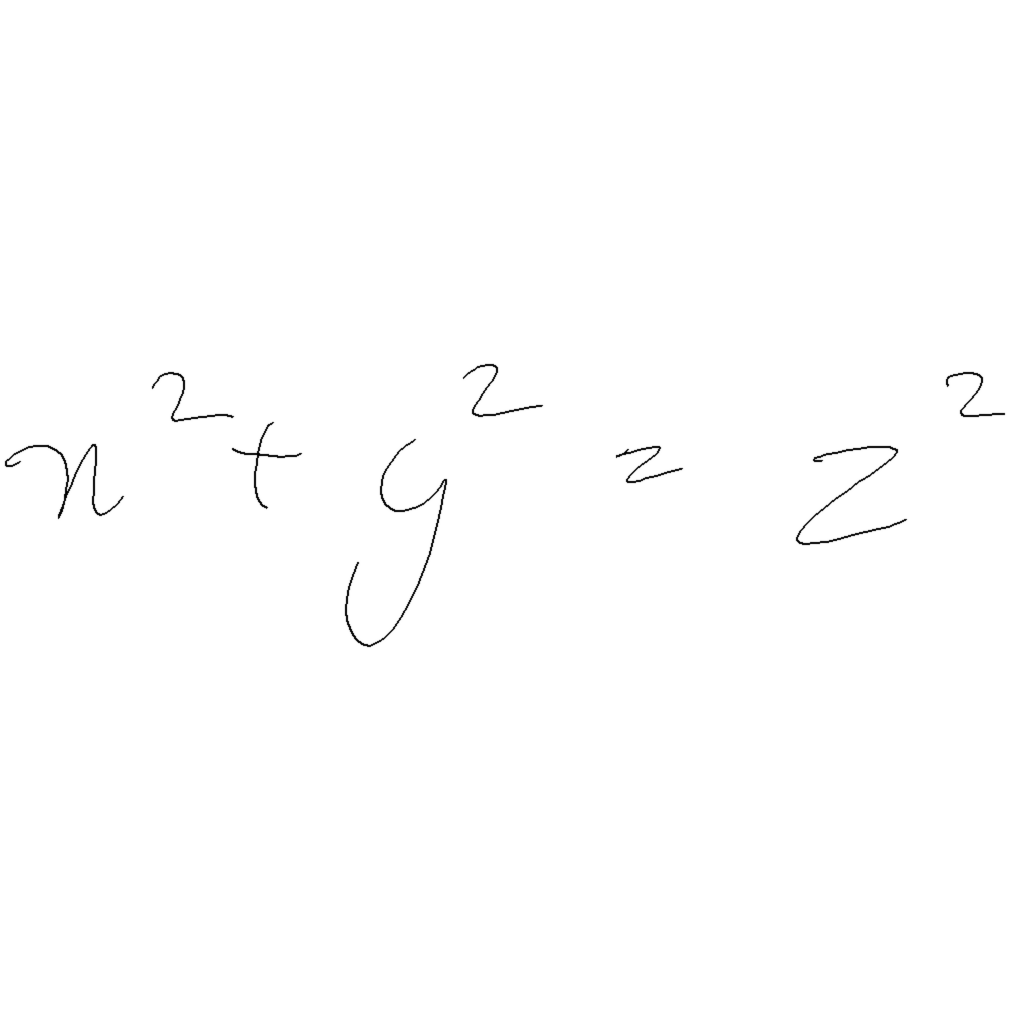 x² + y² = z²